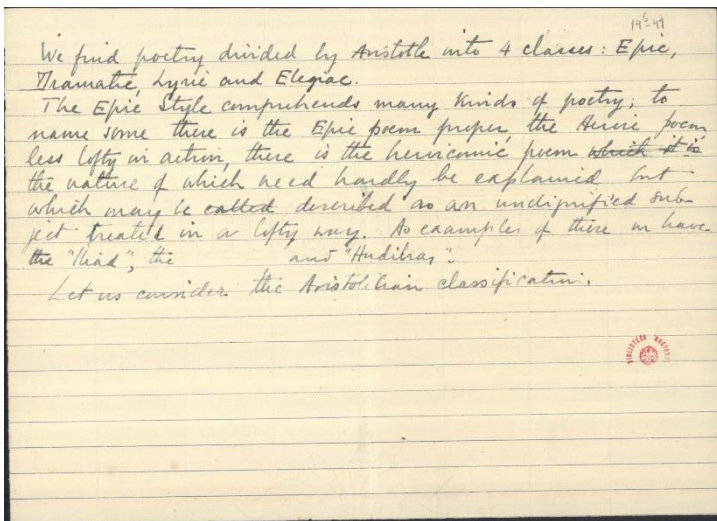 14⁶-41
We find poetry divided by Aristotle into 4 classes: Epic,
Dramatic, Lyric and Elegiac.
The Epic Style comprehends many kinds of poetry; to
name some there is the Epic poem proper, the Heroic poem,
less lofty in action, there is the heroicomic poem which it is
the nature of which need hardly be explained but
which may be called described as an undignified sub-
ject treated in a lofty way. As examples of these we have
the "Iliad", the and "Hudibras".
Let us consider the Aristotelian classification.
BIBLIOTECA NACIONAL